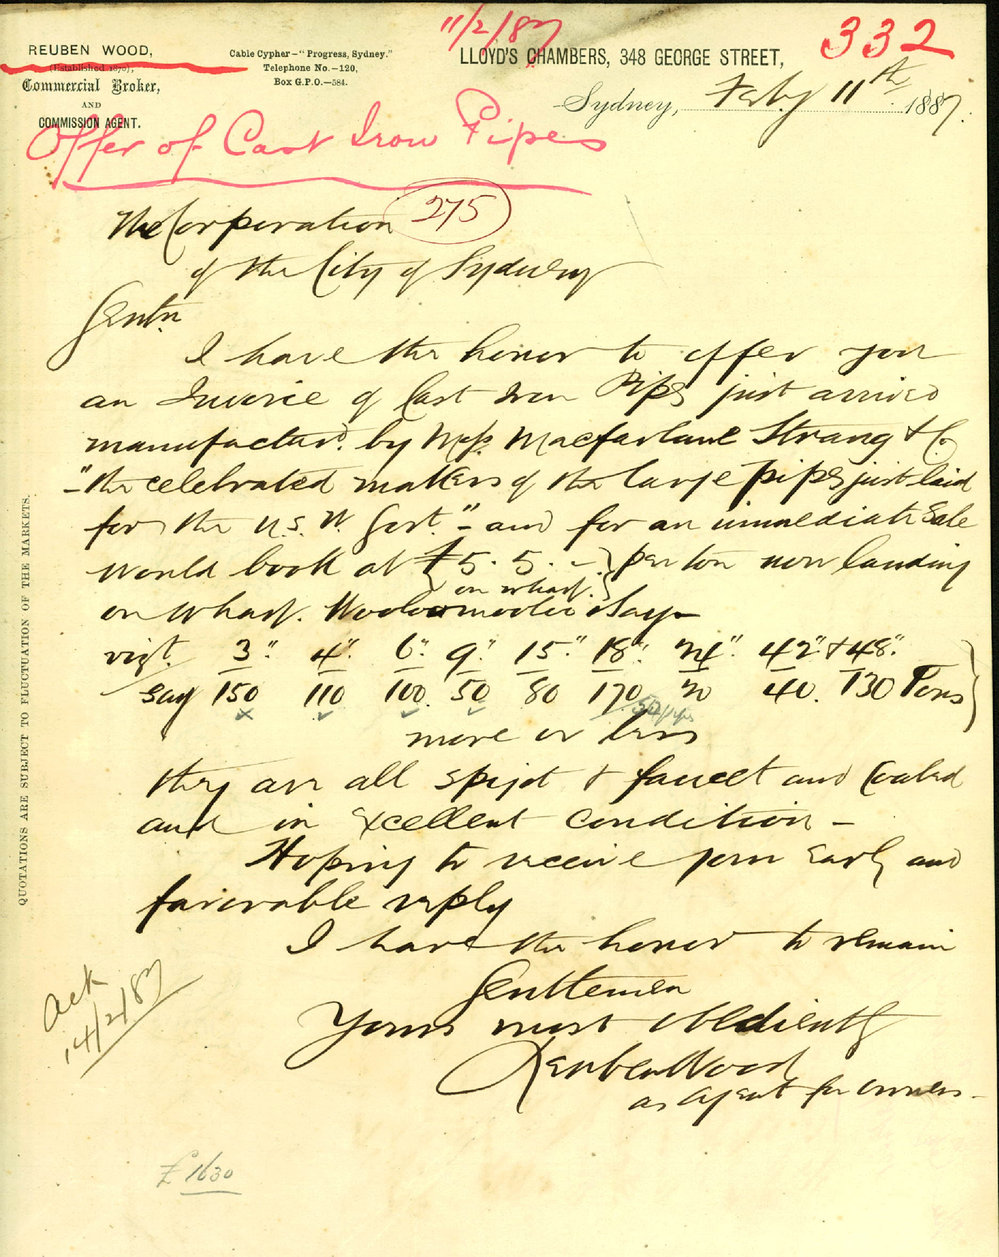 11/2/87
332
REUBEN WOOD,
(Established 1870),
Commercial Broker,
AND
COMMISSION AGENT.
Cable Cypher—"Progress, Sydney."
Telephone No.—120,
Box G.P.O.—584.
LLOYD'S CHAMBERS, 348 GEORGE STREET,
Sydney, Feby 11th 1887.
Offer of Cast Iron Pipes
The Corporation 275
of the City of Sydney
Gentn
I have the honor to offer you
an Invoice of Cast Iron Pipes just arrived
manufactd. by Mess Macfarlane Strang & Co.
"the celebrated makers of the large pipes just laid
for the N.S.W. Govt." and for an immediate Sale
would book at £5.5.- per ton now landing
on wharf.
on wharf. Wooloomooloo Say
vizt. 3" 4" 6" 9" 15" 18" 24" 42" & 48"
Say 150 110 100 50 80 170 20 40 130 Tons
more or less
they are all spigot & faucet and Coated
and in Excellent condition —
Hoping to receive your Early and
favorable reply
I have the honor to remain
Gentlemen
Yours most obediently
Reuben Wood
as agent for owners —
Ack
14/2/87
£1630
QUOTATIONS ARE SUBJECT TO FLUCTUATION OF THE MARKETS.